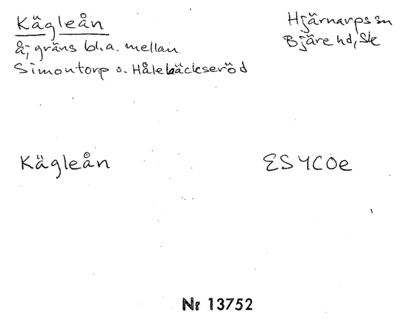 Kägleån
Hjärnarps sn
å; gräns bl.a. mellan
Bjäre hd, Sk
Simontorp o. Hålebäckseröd
Kägleån
ESYCOe
Nr 13752